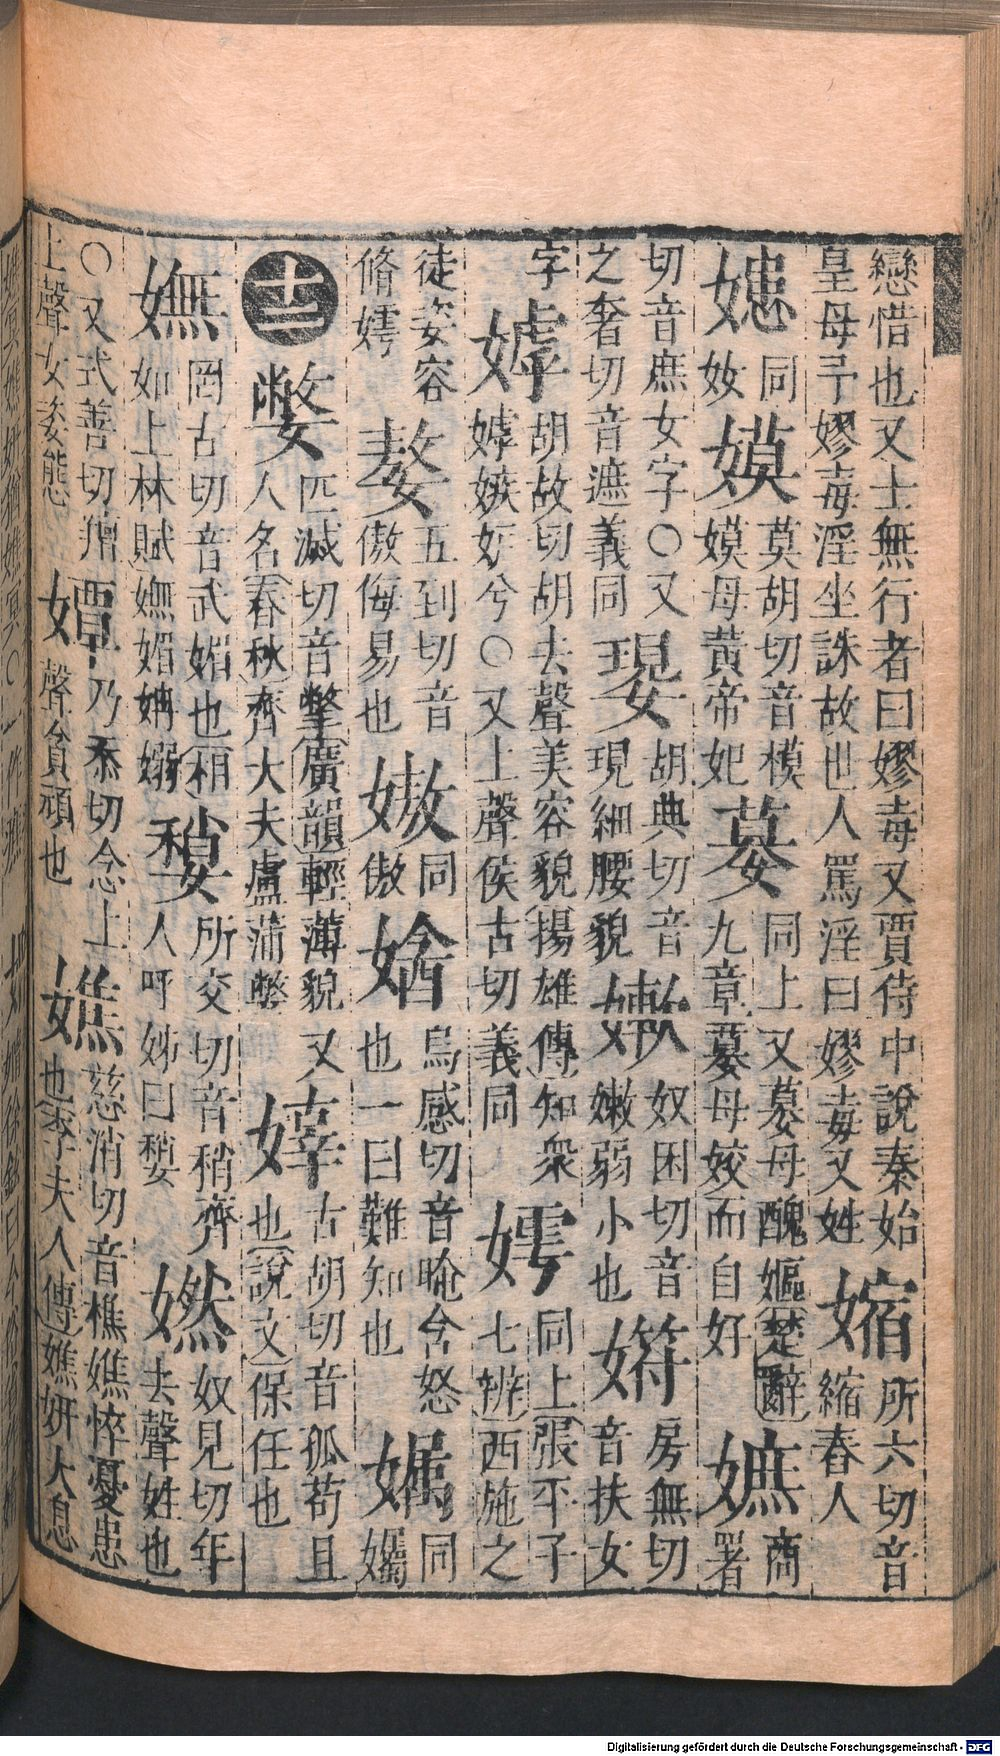 戀惜也又士無行者曰嫪毐又賈侍中說秦始
皇母予嫪毐淫坐誅故世人罵淫曰嫪毐又姓
嫬
所六切音
縮舂人
嫕
同
妐
嫫
莫胡切音模
嫫母黃帝妃
䕒
同上又䕒母醜嫗楚辭
九章䕒母姣而自好
嫬
商署
切音庶女字○又
之奢切音遮義同
䙾
胡典切音
現細腰貌
嫩
奴困切音
嫩弱小也
𡡁
房無切
音扶女
字
嫭
胡故切胡去聲美容貌揚雄傳知衆
嫭嫉妒兮○又上聲侯古切義同
嫮
同上張平子
七辨西施之
徒姿容
脩嫮
嫯
五到切音
傲侮易也
嫩
同
傲
㜝
烏感切音晻含怒
也一曰難知也
㛿
同
孎
十二
嫳
匹滅切音撆廣韻輕薄貌又
人名春秋齊大夫盧蒲嫳
嫴
古胡切音孤苟且
也說文保任也
嫵
罔古切音武媚也相
如上林賦嫵媚姌嫋
䅵
所交切音稍齊
人呼姊曰䅵
㜣
奴見切年
去聲姓也
○又式善切䎒
上聲女姿態
嬋
乃忝切念上
聲貪頑也
嫶
慈消切音樵嫶悴憂患
也李夫人傳嫶妍大息
Digitalisierung gefördert durch die Deutsche Forschungsgemeinschaft - DFG